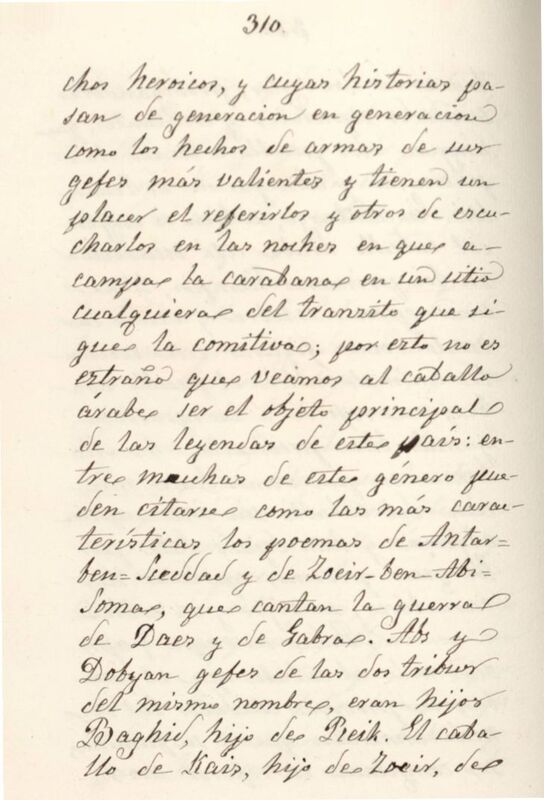 310.
chos heroicos, y cuyas historias pa-
san de generacion en generacion
como los hechos de armas de sus
gefes más valientes y tienen un
placer el referirlos y otros de escu-
charlos en las noches en que a-
campa la carabana en un sitio
cualquiera del transito que si-
gue la comitiva; por esto no es
estraño que veamos al caballo
árabe ser el objeto principal
de las leyendas de este país: en-
tre muchas de este género pue-
den citarse como las más carac-
terísticas los poemas de Antar=
ben=Sceddad y de Zoeir-ben-Abi-
Soma, que cantan la guerra
de Daes y de Gabra. Abs y
Dobyan gefes de las dos tribus
del mismo nombre, eran hijos
Baghid, hijo de Reik. El caba-
llo de Kais, hijo de Zoeir, de